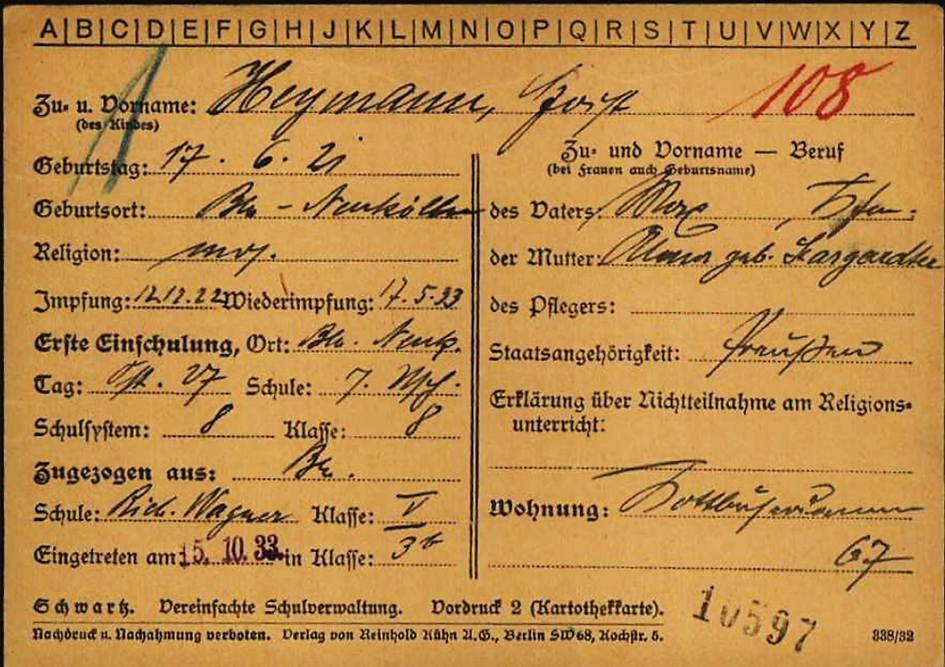 A|B|C|D|E|F|G|H|J|K|L|M|N|O|P|Q|R|S|T|U|V|W|X|Y|Z
108
Zu- u. Vorname: Heymann, Horst
(des Kindes)
Geburtstag: 17. 6. 21
Geburtsort: Bln - Neukölln
Religion: mos.
Impfung: 12.12.22 Wiederimpfung: 17.5.33
Erste Einschulung, Ort: Bln. Neuk.
Tag: Ost. 27 Schule: 7.
Schulsystem: 8 Klasse: 8
Zugezogen aus: Bln.
Schule: Rich. Wagner Klasse: V
Eingetreten am 15. 10. 33. in Klasse: 3b
Zu- und Vorname — Beruf
(bei Frauen auch Geburtsname)
des Vaters: Max,
der Mutter: geb.
des Pflegers:
Staatsangehörigkeit: Preußen
Erklärung über Nichtteilnahme am Religions-
unterricht:
Wohnung: Kottbuserdamm
67
Schwartz. Vereinfachte Schulverwaltung. Vordruck 2 (Kartothekkarte).
Nachdruck u. Nachahmung verboten. Verlag von Reinhold Kühn A.G., Berlin SW68, Kochstr. 5.
10597
338/32